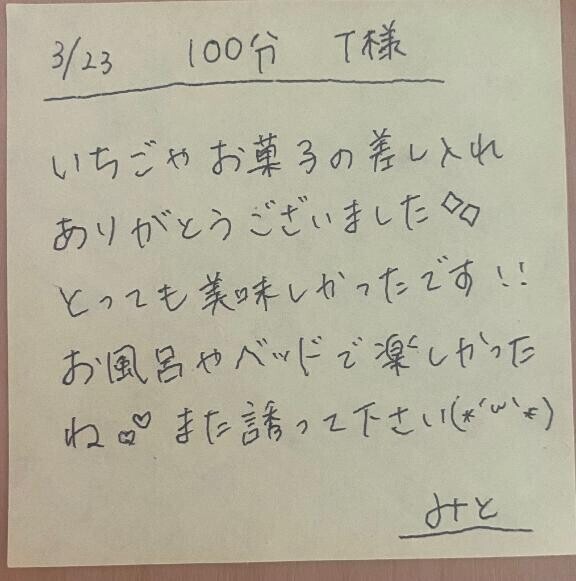 3/23 100分 T様
いちごやお菓子の差し入れ
ありがとうございました◇◇
とっても美味しかったです!!
お風呂やベッドで楽しかった
ね♡♡ また誘って下さい(*´ω`*)
みと